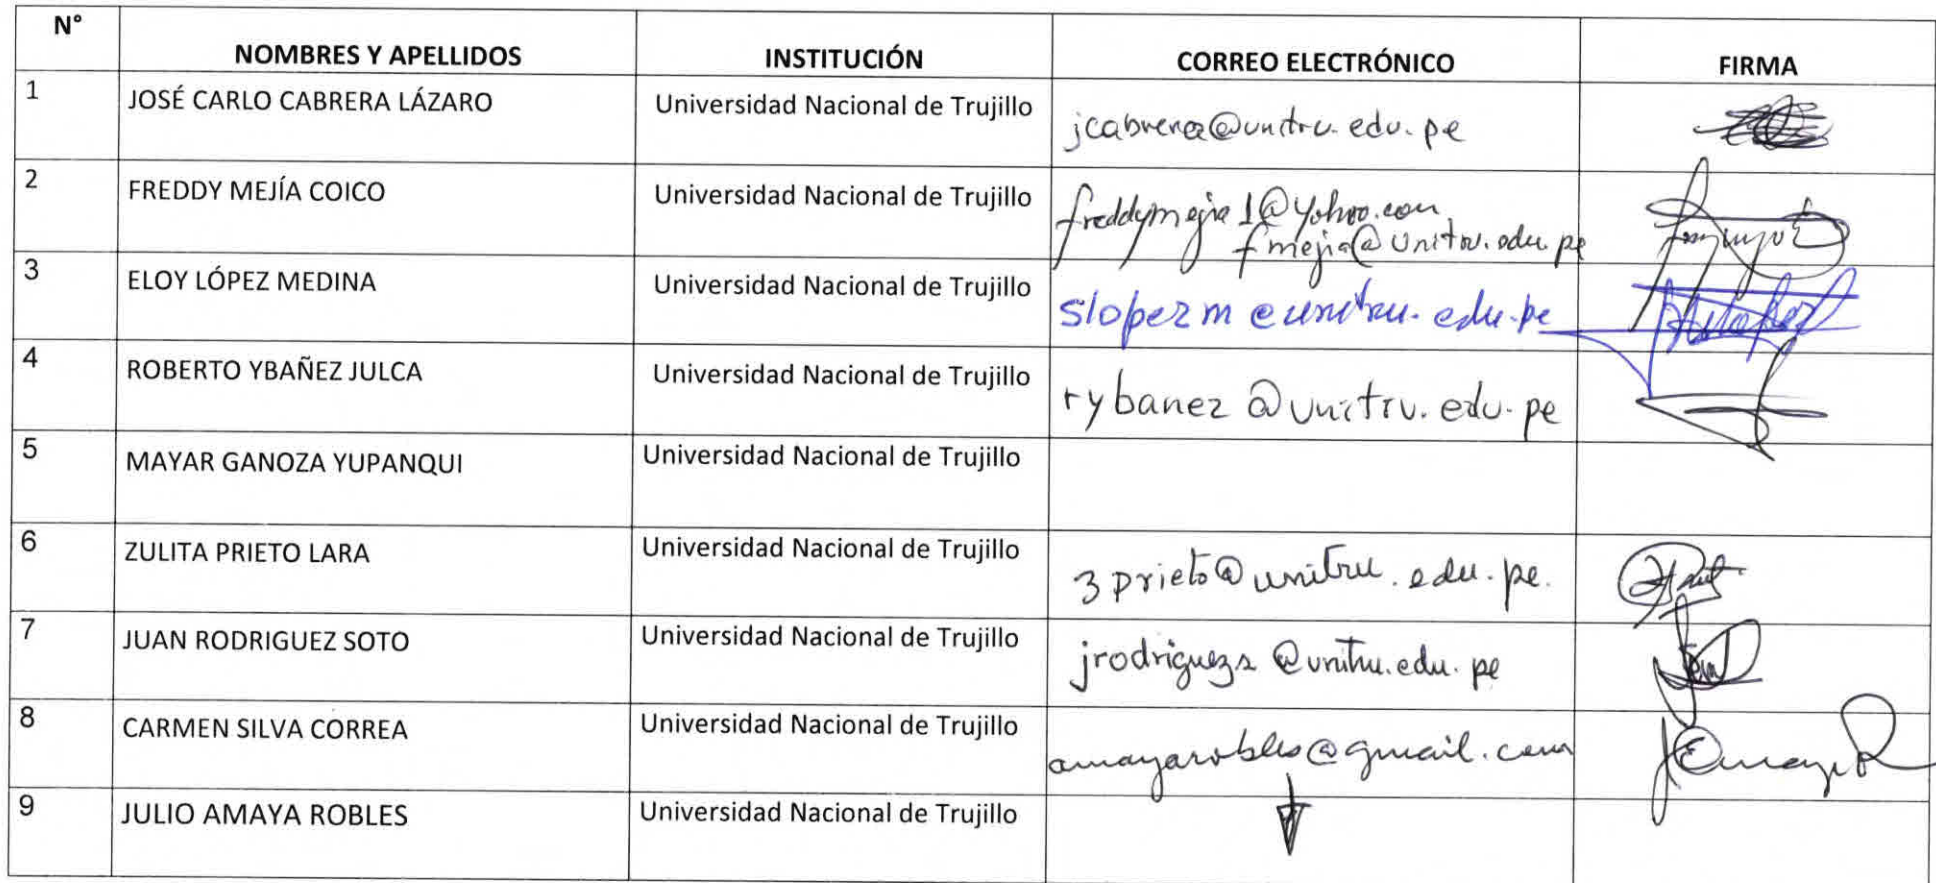 N° NOMBRES Y APELLIDOS INSTITUCIÓN CORREO ELECTRÓNICO FIRMA
1 JOSÉ CARLO CABRERA LÁZARO Universidad Nacional de Trujillo jcabrera@unitru.edu.pe
2 FREDDY MEJÍA COICO Universidad Nacional de Trujillo freddymejia1@yahoo.com
fmejia@unitru.edu.pe
3 ELOY LÓPEZ MEDINA Universidad Nacional de Trujillo slopezm@unitru.edu.pe
4 ROBERTO YBAÑEZ JULCA Universidad Nacional de Trujillo rybanez@unitru.edu.pe
5 MAYAR GANOZA YUPANQUI Universidad Nacional de Trujillo
6 ZULITA PRIETO LARA Universidad Nacional de Trujillo zprieto@unitru.edu.pe.
7 JUAN RODRIGUEZ SOTO Universidad Nacional de Trujillo jrodriguezs@unitru.edu.pe
8 CARMEN SILVA CORREA Universidad Nacional de Trujillo amayarobles@gmail.com
9 JULIO AMAYA ROBLES Universidad Nacional de Trujillo